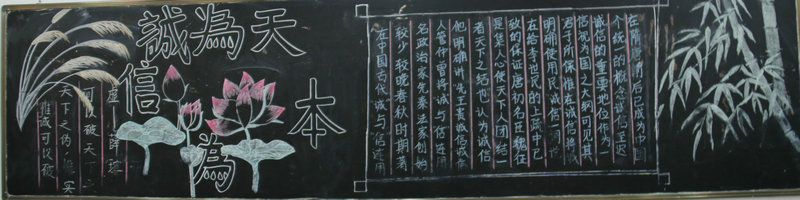 誠為天
信為本
惟诚可以破
天下之伪，惟实
可以破天下之
虚—薛瑄
在中国古代诚与信连用
较少较晚春秋时期著
名政治家先秦法家创始
人管仲曾将诚与信连用
他明确讲先王贵诚信诚信
者天下之结也认为诚信
是集人心使天下人团结一
敌的保证唐初名臣魏征
在给李世民的上疏中已
明确使用民诚信一词
君子所保惟在诚信将诚
信视为国之大纲可见其
诚信的重要地位作为
个统的概念诚信至迟
在隋唐前后已成为中国